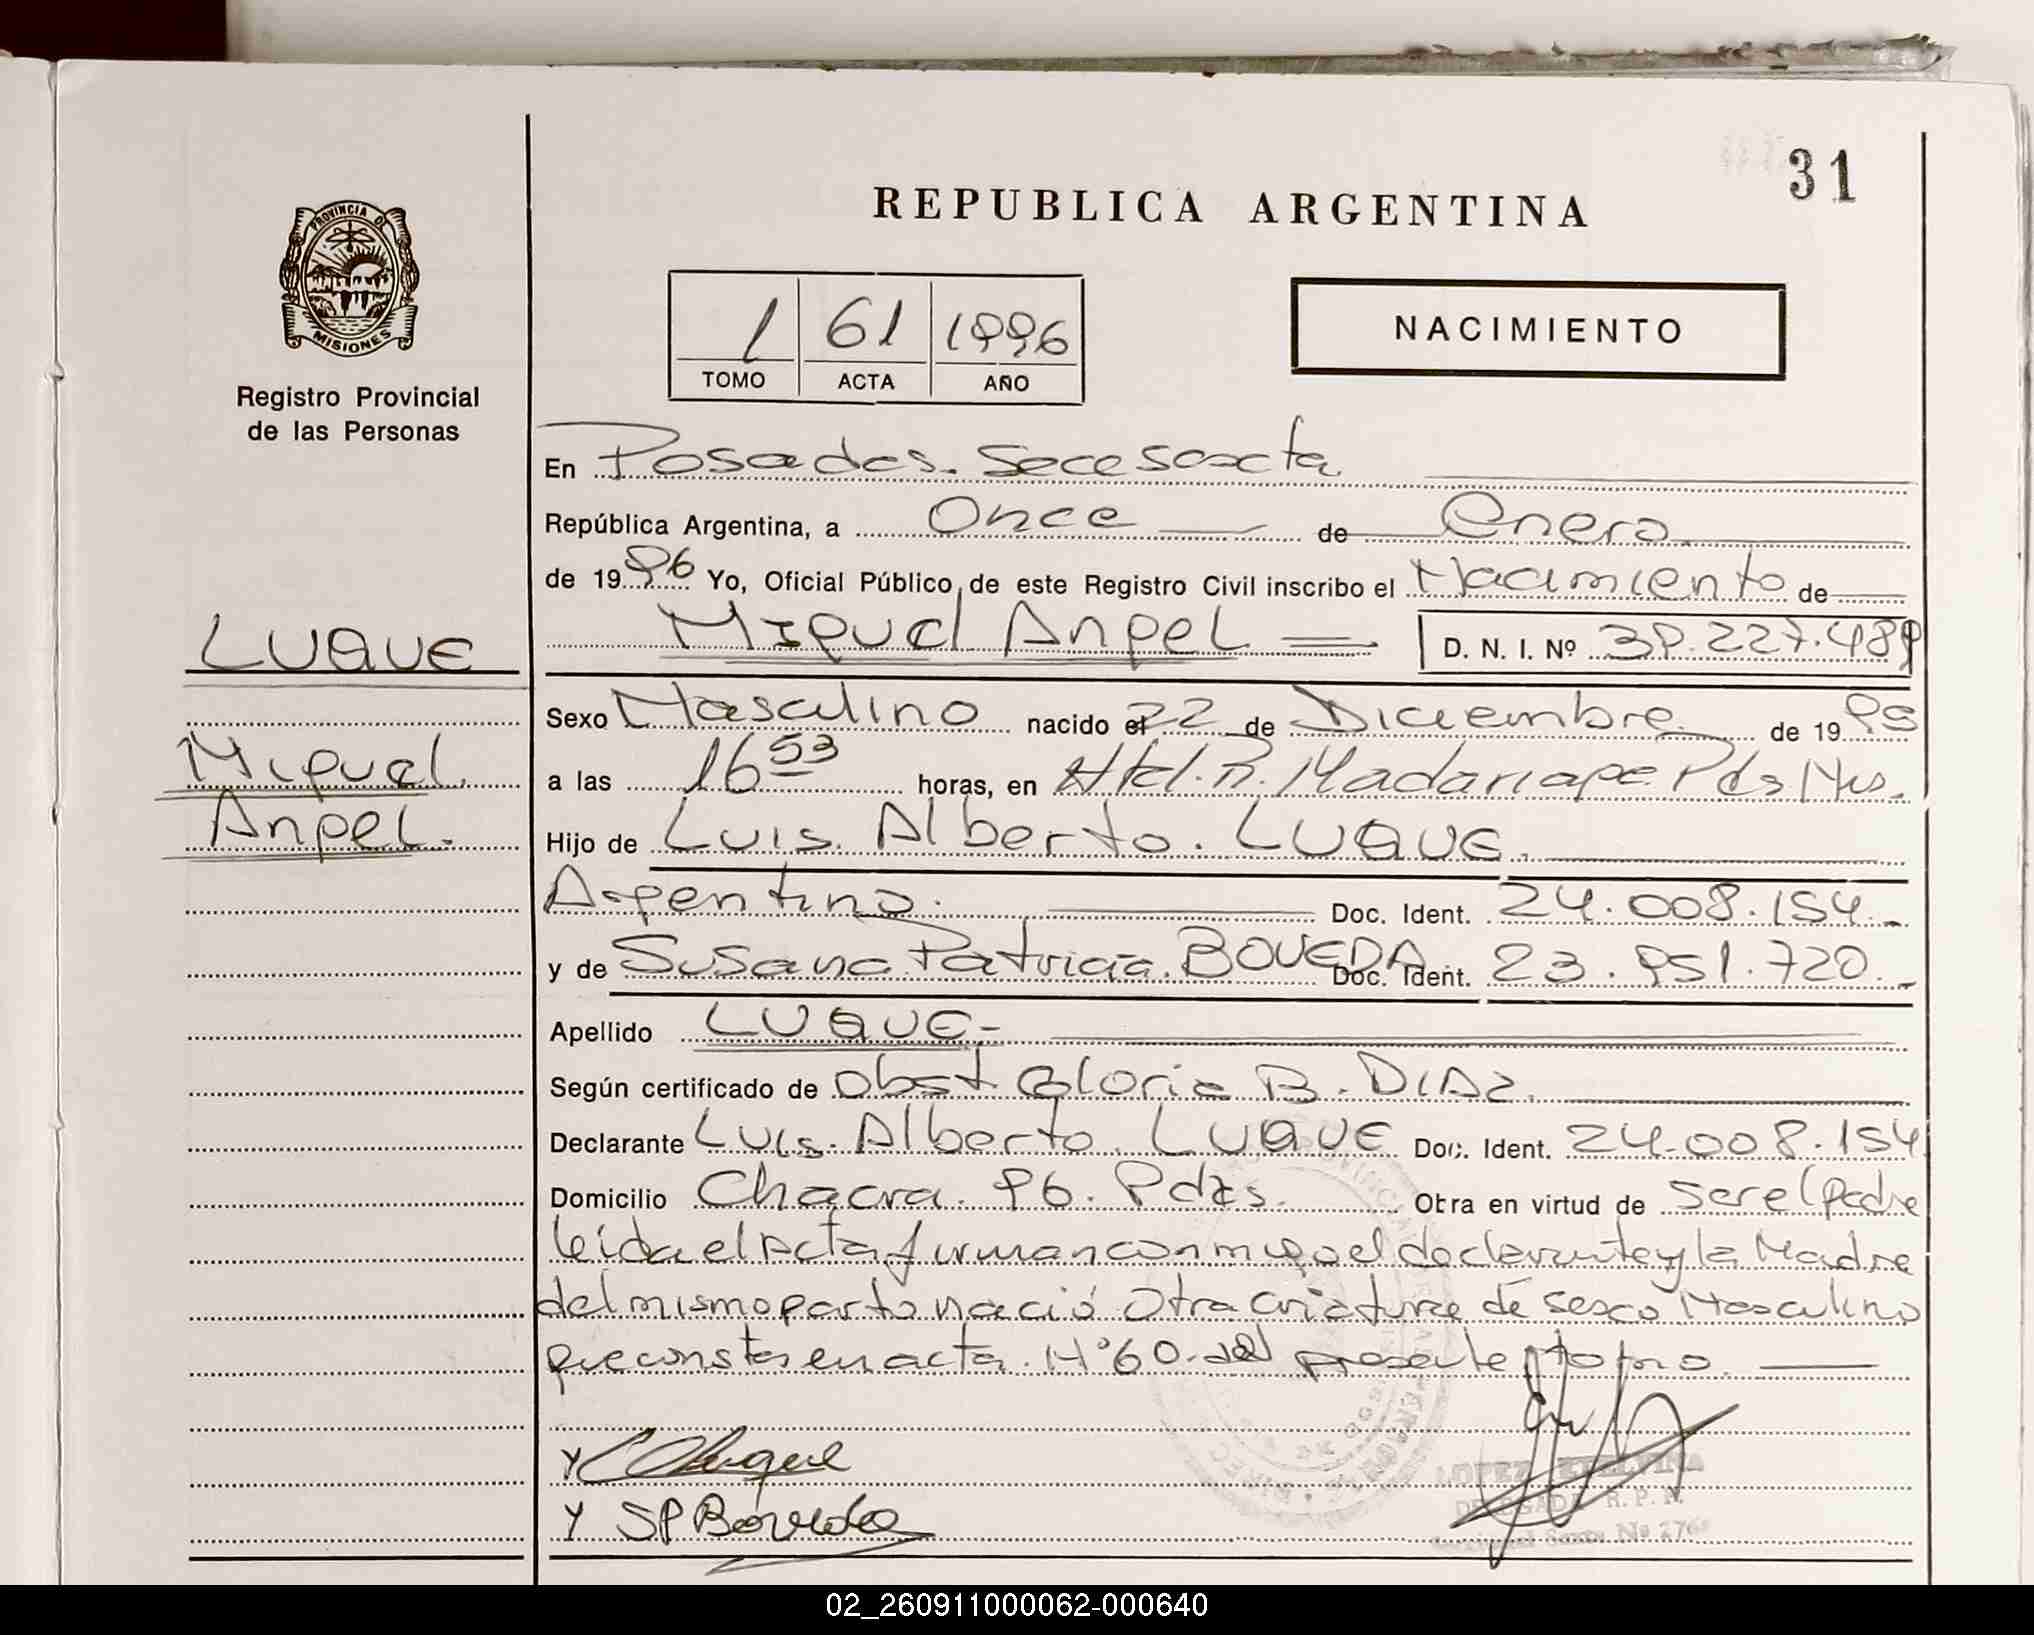 31
REPUBLICA ARGENTINA
PROVINCIA DE
MISIONES
Registro Provincial
de las Personas
1 61 1996
TOMO ACTA AÑO
NACIMIENTO
En Posadas. Secc sexta
República Argentina, a Once de Enero
de 1996 Yo, Oficial Público de este Registro Civil inscribo el Nacimiento de
Miguel Angel D. N. I. Nº 39.227.489
LUQUE
Sexo Masculino nacido el 22 de Diciembre de 1995
Miguel
a las 16 53 horas, en Htal. R. Madariaga Pdas Mns.
Angel.
Hijo de Luis. Alberto. LUQUE.
Argentino. Doc. Ident. 24.008.154.-
y de Susana Patricia. BOVEDA Doc. Ident. 23.951.720.-
Apellido LUQUE.-
Según certificado de obst. Gloria B. DIAZ.
Declarante Luis. Alberto. LUQUE Doc. Ident. 24.008.154
Domicilio Chacra. 96. Pdas. Obra en virtud de ser el padre
leida el acta firman conmigo el declarante y la Madre
del mismo parto nació otra criatura de sexo Masculino
que consta en acta. Nº 60. del presente tomo.
Y Luque
Y SPBoveda
LOPEZ ETELVINA
DELEGADA R. P. P.
02_260911000062-000640